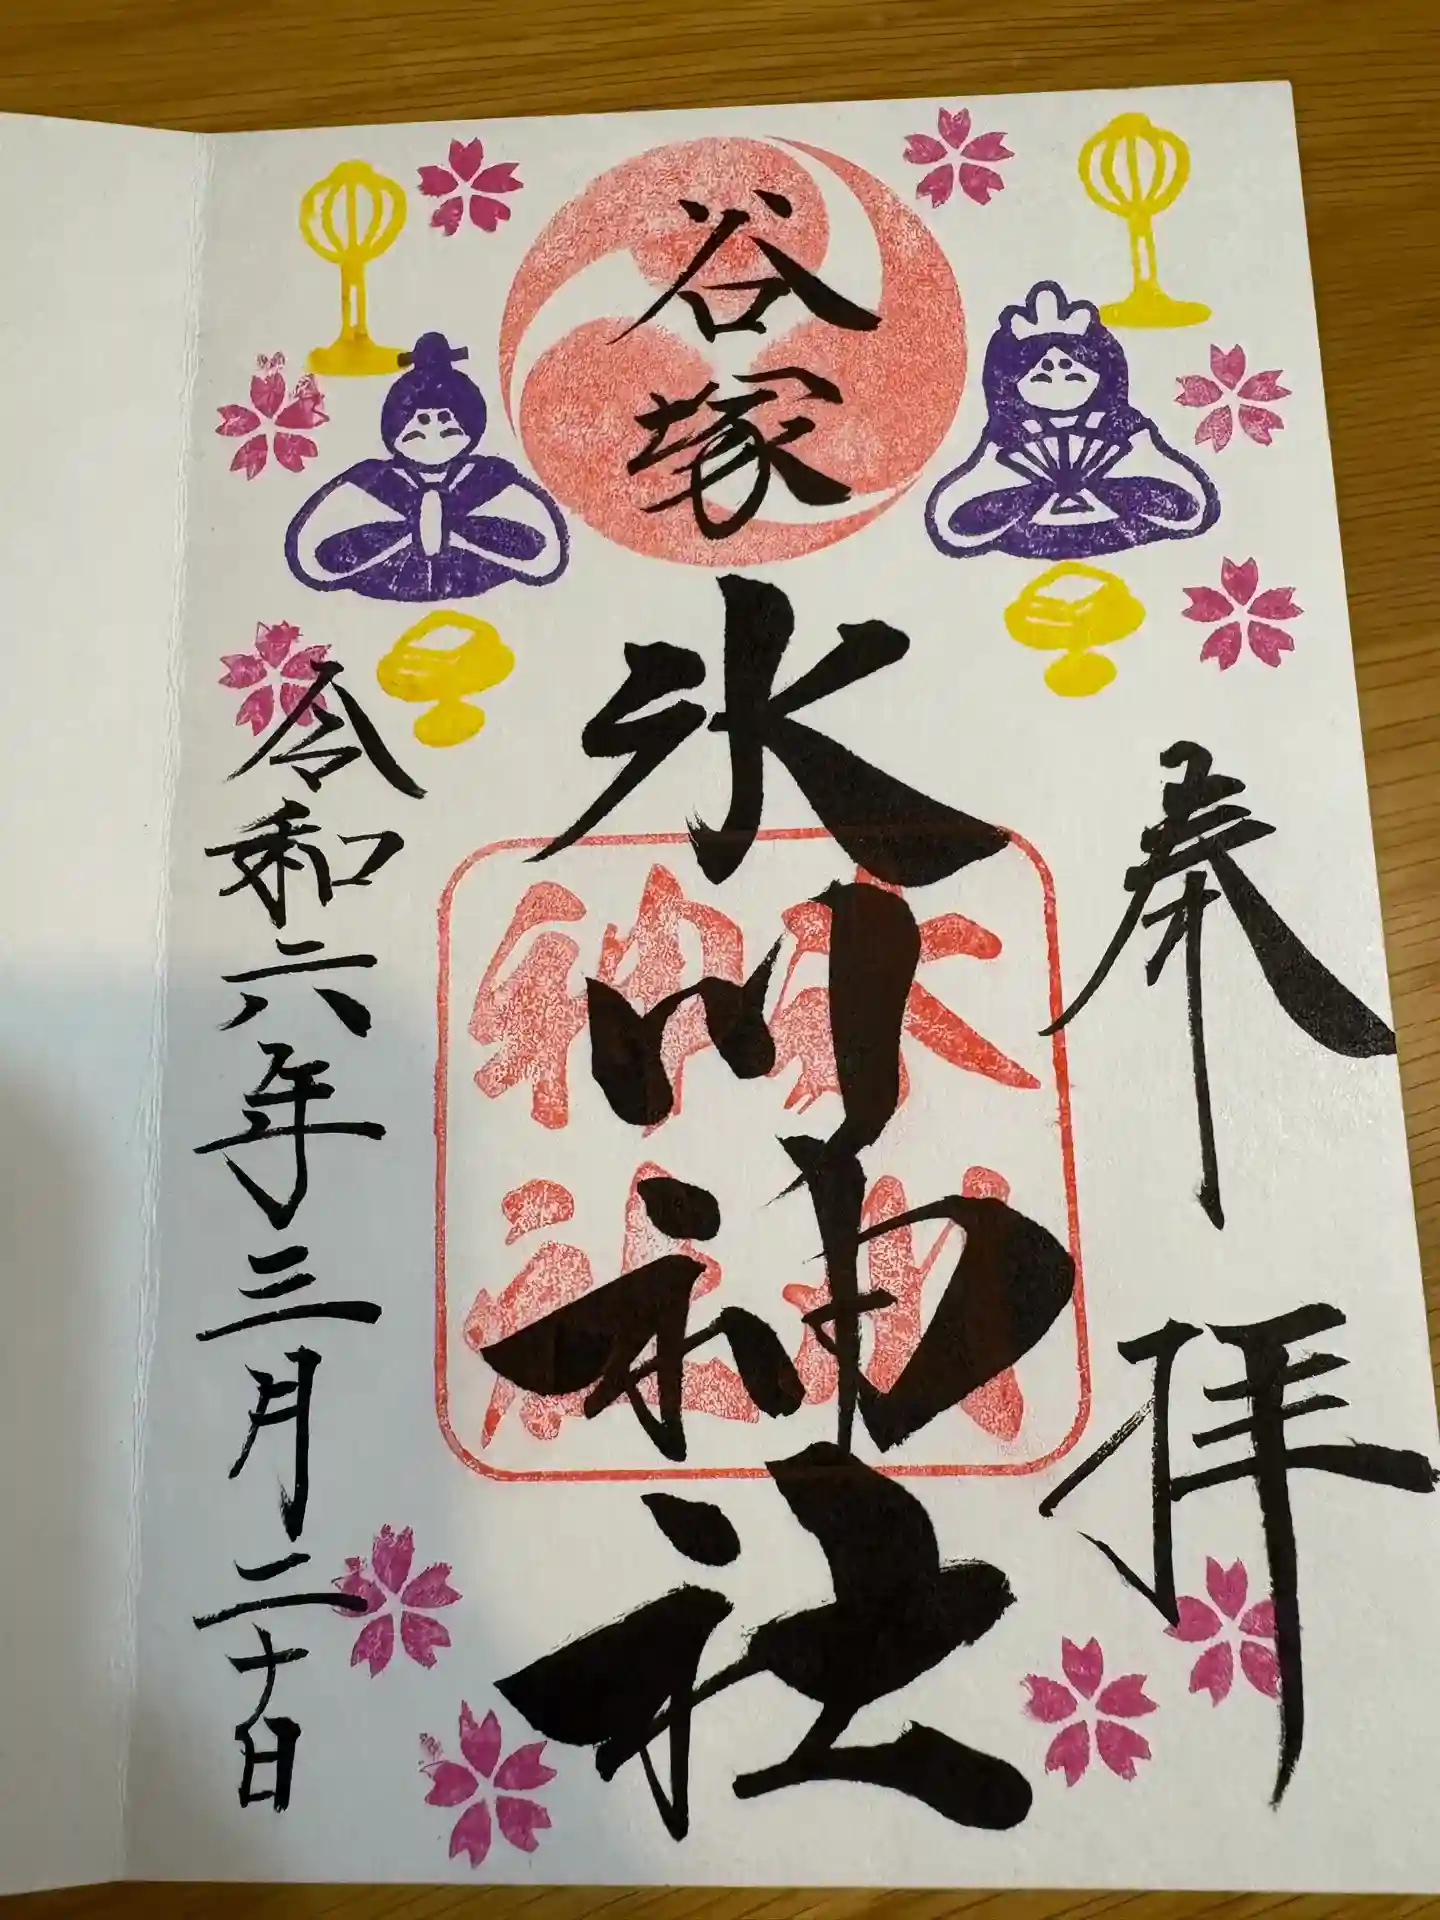 奉拝
谷塚
氷川神社
氷川
神社
令和六年三月二十日